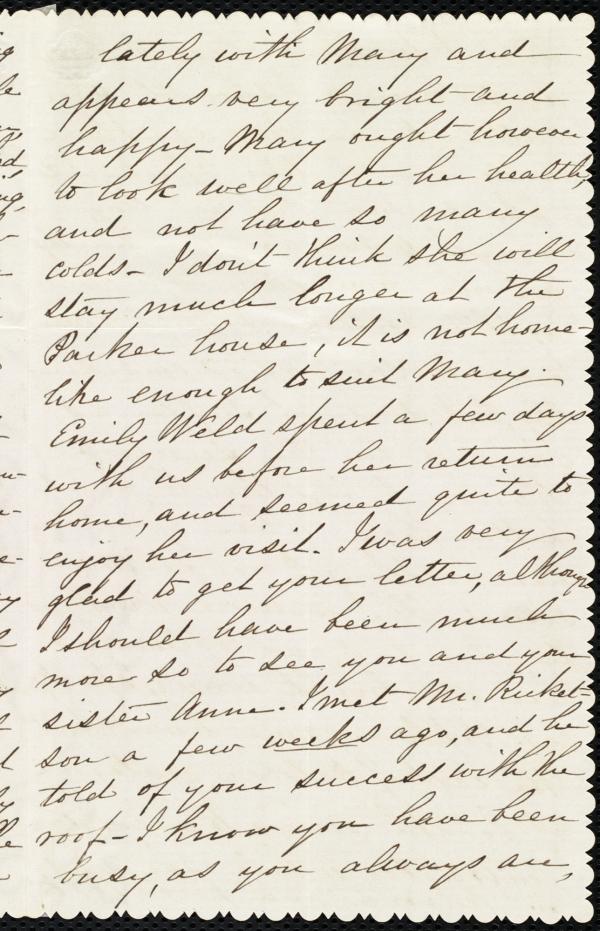 lately with Mary and
appears very bright and
happy - Mary ought however
to look well after her health,
and not have so many
colds - I don't think she will
stay much longer at the
Parker house, it is not home-
like enough to suit Mary.
Emily Weld spent a few days
with us before her return
home, and seemed quite to
enjoy her visit. I was very
glad to get your letter, although
I should have been much
more so to see you and your
sister Anne. I met Mr. Ricket=
son a few weeks ago, and he
told of your success with the
roof - I know you have been
busy, as you always are,